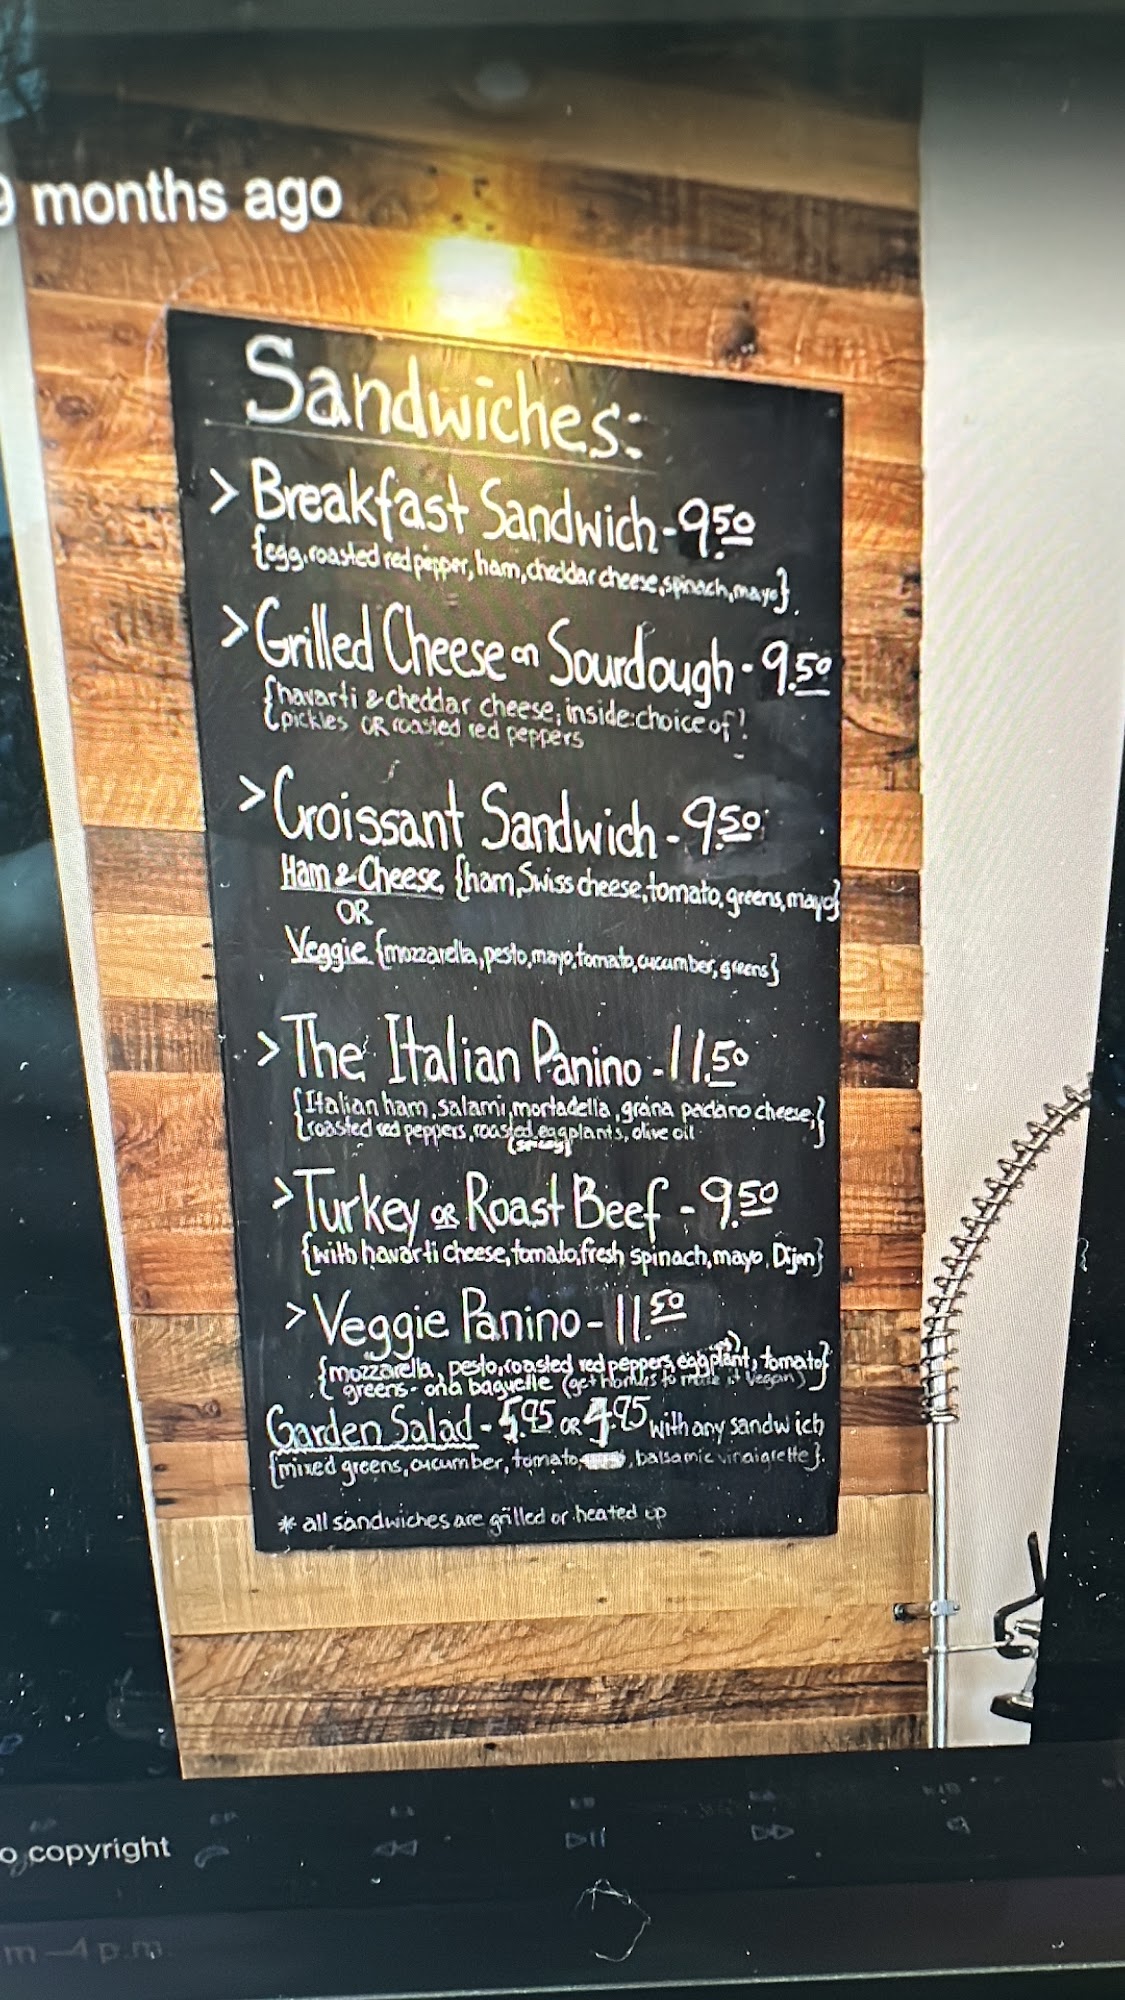 9 months ago
Sandwiches:
> Breakfast Sandwich - 9.50
{egg, roasted red pepper, ham, cheddar cheese, spinach, mayo}
> Grilled Cheese on Sourdough - 9.50
{havarti & cheddar cheese, inside: choice of
pickles OR roasted red peppers
> Croissant Sandwich - 9.50
Ham & Cheese {ham, Swiss cheese, tomato, greens, mayo}
OR
Veggie {mozzarella, pesto, mayo, tomato, cucumber, greens}
> The Italian Panino - 11.50
{Italian ham, salami, mortadella, grana padano cheese,
roasted red peppers, roasted eggplants, olive oil}
(spicey)
> Turkey OR Roast Beef - 9.50
{with havarti cheese, tomato, fresh spinach, mayo, Dijon}
> Veggie Panino - 11.50
{mozzarella, pesto, roasted red peppers, eggplant, tomato}
greens - on a baguette (get hommus to make it vegan)
Garden Salad - 5.95 OR 4.95 with any sandwich
{mixed greens, cucumber, tomato, balsamic vinaigrette}
* all sandwiches are grilled or heated up
o copyright
m – 4 p.m.